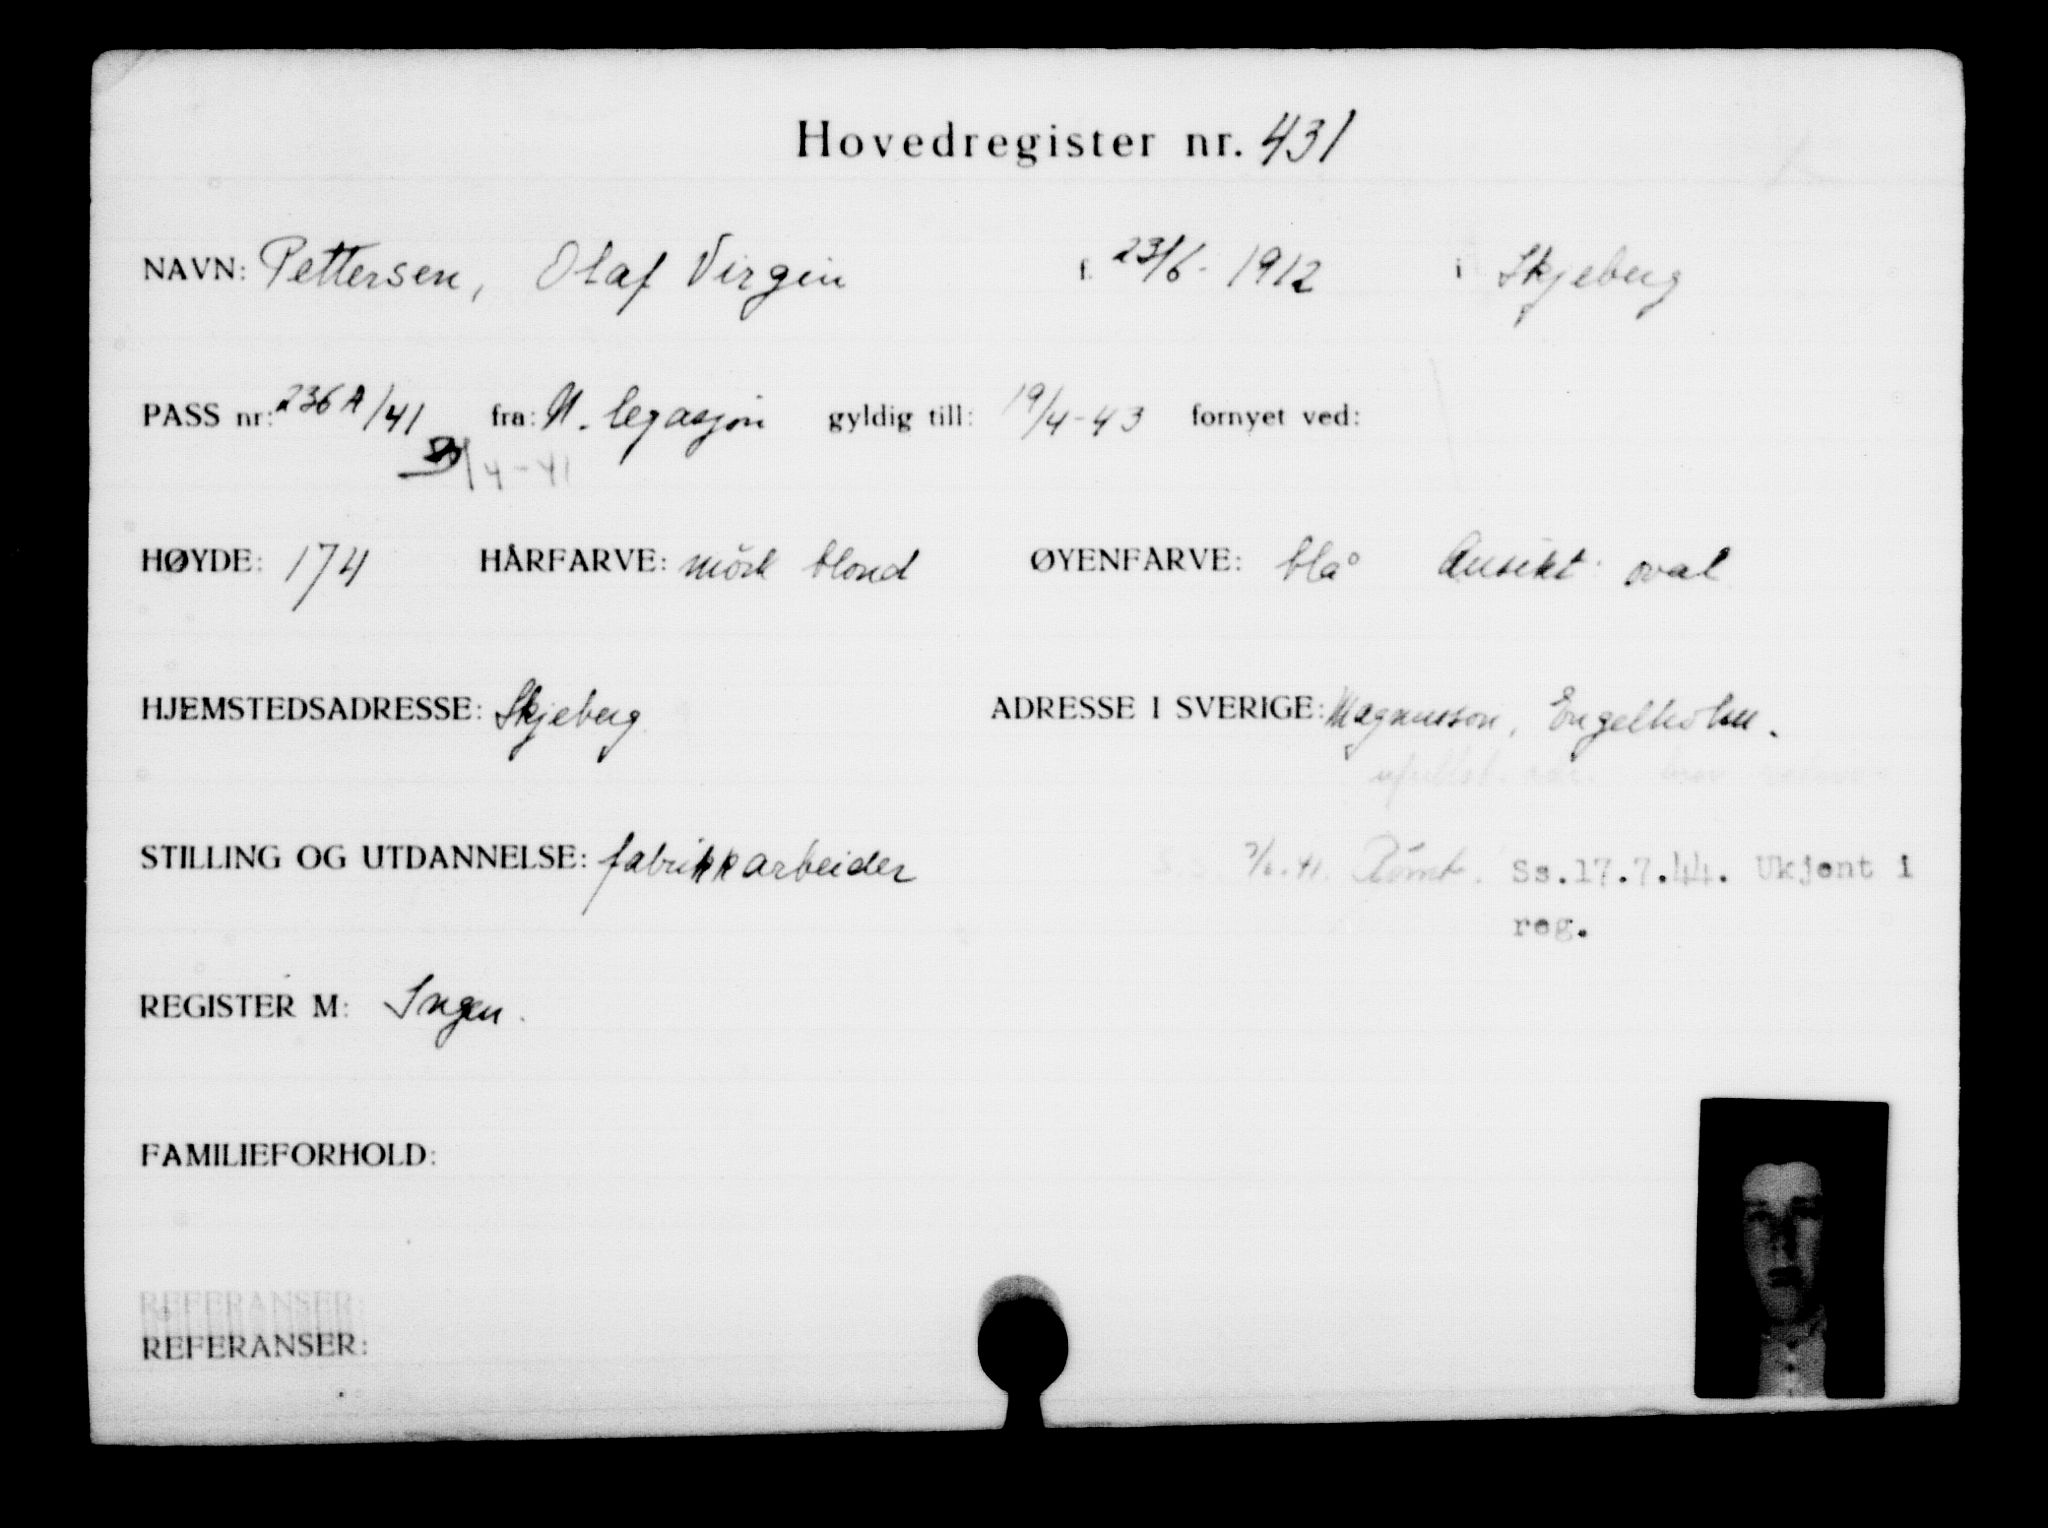 Hovedregister nr. 431
NAVN: Pettersen, Olaf Virgin f. 23/6- 1912 i Skjeberg
PASS nr: 236 A/41 fra: N. legasjon gyldig till: 19/4-43 fornyet ved:
/4-41
HØYDE: 174 HÅRFARVE: mörk blond ØYENFARVE: blå Ansikt: oval
HJEMSTEDSADRESSE: Skjeberg. ADRESSE I SVERIGE: Magnusson, Engelholm.
STILLING OG UTDANNELSE: fabrikkarbeider Römt. Ss.17.7.44. Ukjent i
reg.
REGISTER M: Ingen.
FAMILIEFORHOLD:
REFERANSER:
REFERANSER: